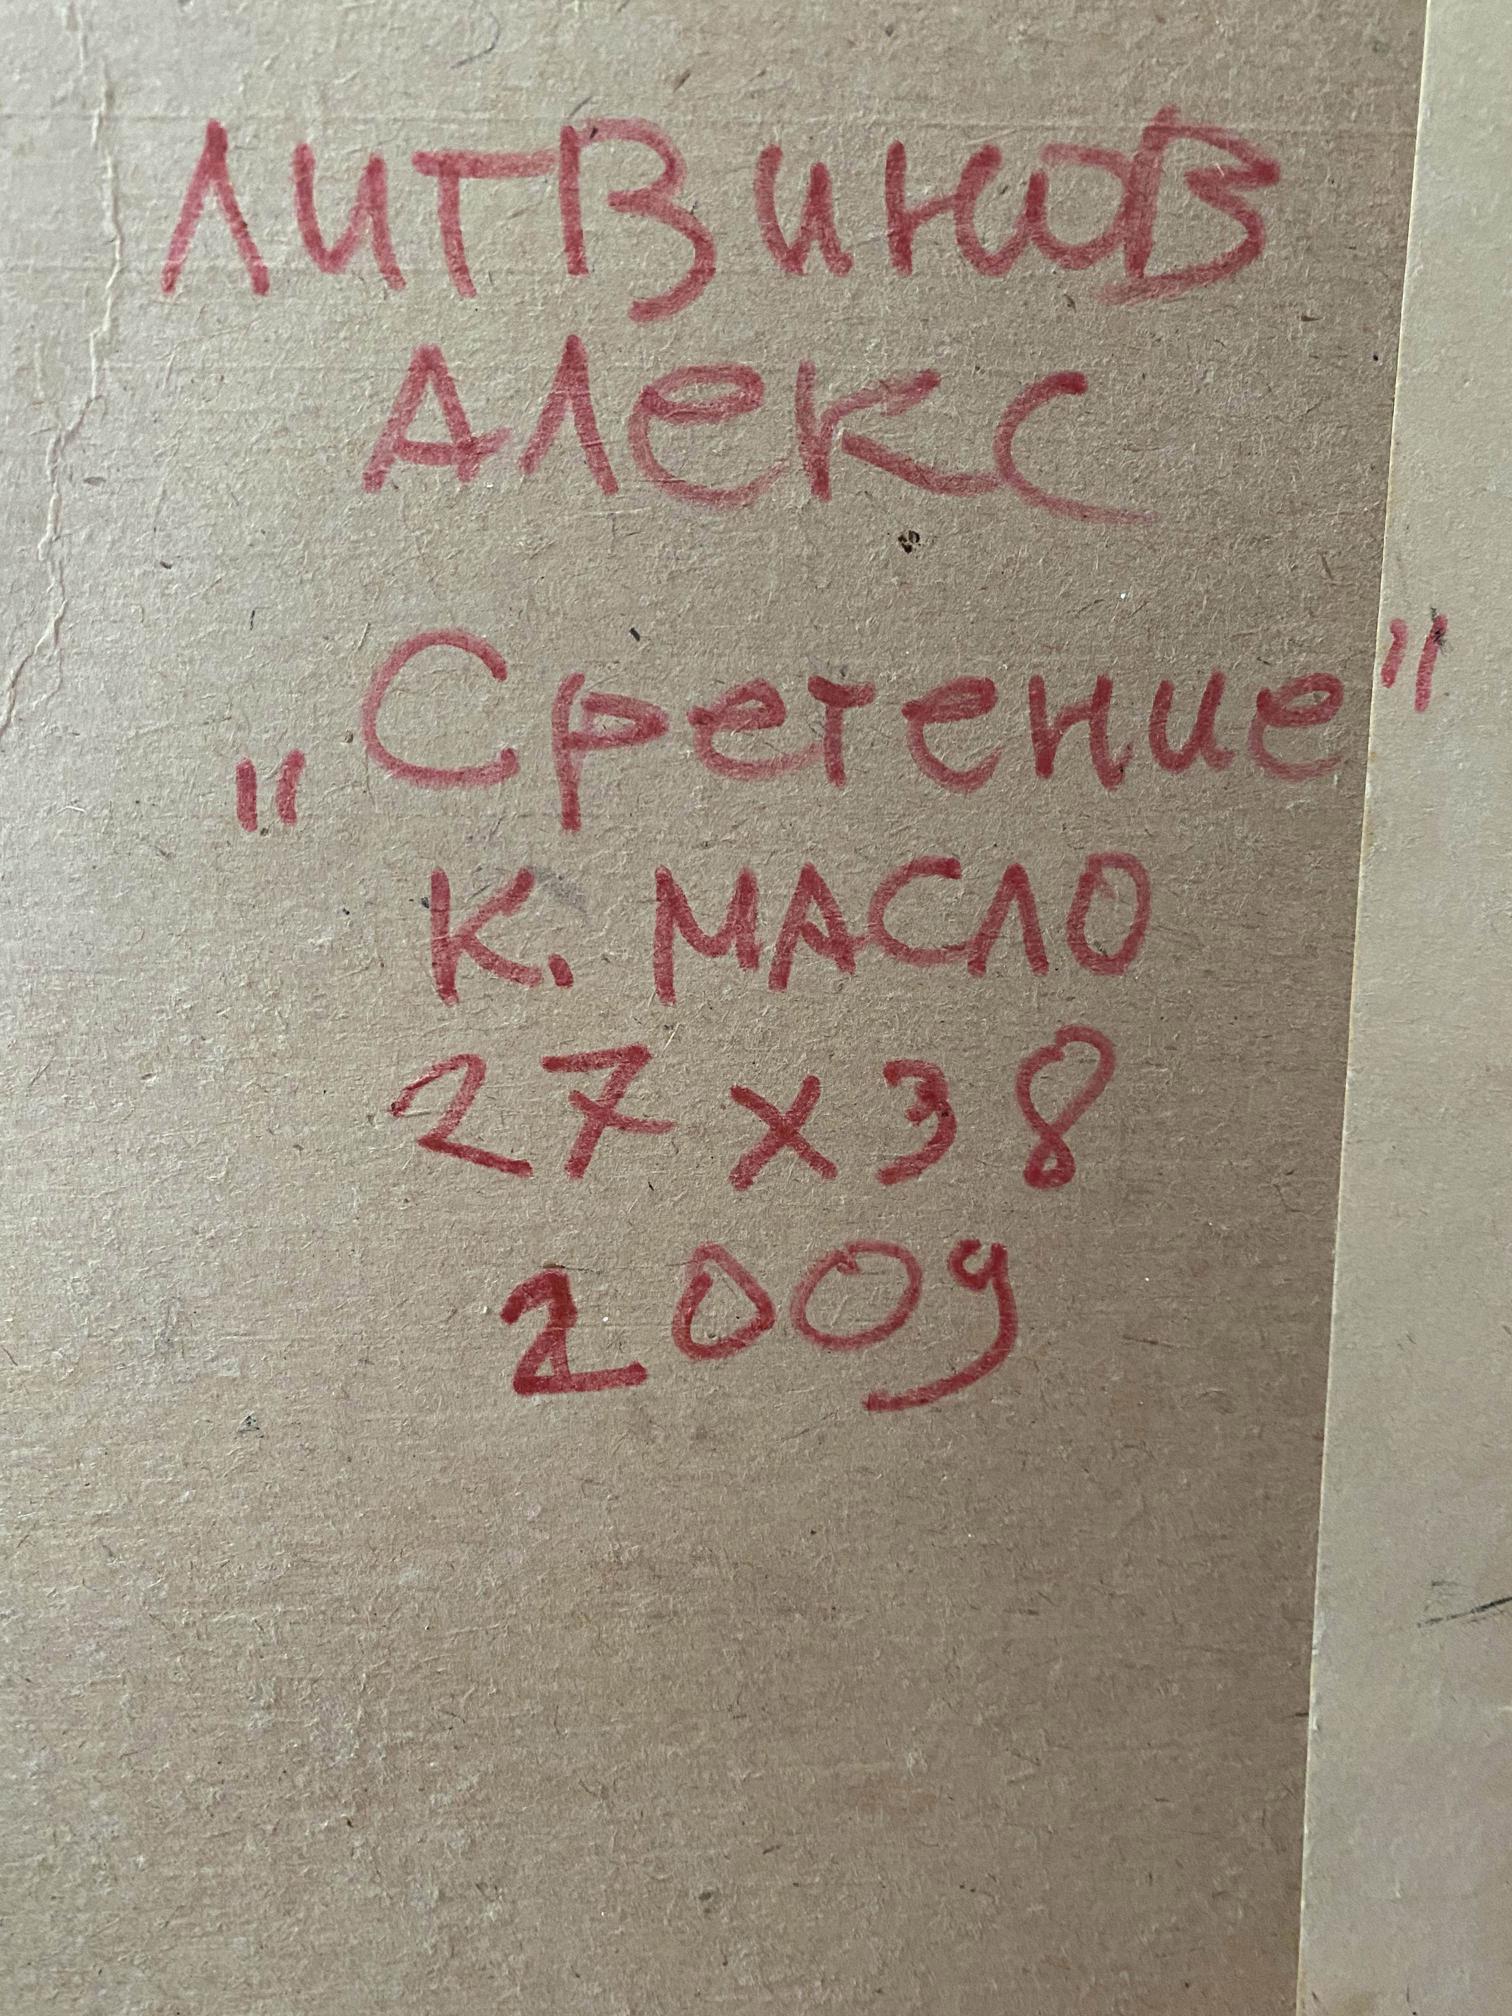 ЛИТВИНОВ
АЛЕКС
„Сретение"
К. МАСЛО
27 х 38
2009